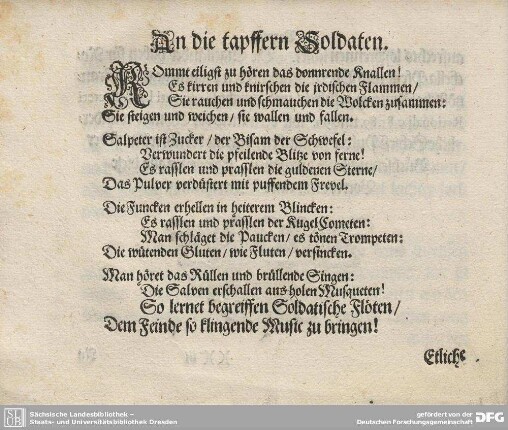 An die tapffern Soldaten.
KOmme eiligst zu hören das donnrende Knallen!
Es kirren und knirschen die jrdischen Flammen/
Sie rauchen und schmauchen die Wolcken zusammen:
Sie steigen und weichen/ sie wallen und fallen.
Salpeter ist Zucker/ der Bisam der Schwefel:
Verwundert die pfeilende Blitze von ferne!
Es rasslen und prasslen die guldenen Sterne/
Das Pulver verdüstert mit puffendem Frevel.
Die Funcken erhellen in heiterem Blincken:
Es rasslen und prasslen der Kugel Cometen:
Man schläget die Paucken/ es tönen Trompeten:
Die wütenden Gluten/ wie Fluten/ versincken.
Man höret das Rüllen und brüllende Singen:
Die Salven erschallen aus holen Musqueten!
So lernet begreiffen Soldatische Flöten/
Dem Feinde so klingende Music zu bringen!
Etliche
SLUB
Sächsische Landesbibliothek –
Staats- und Universitätsbibliothek Dresden
gefördert von der
Deutschen Forschungsgemeinschaft
DFG